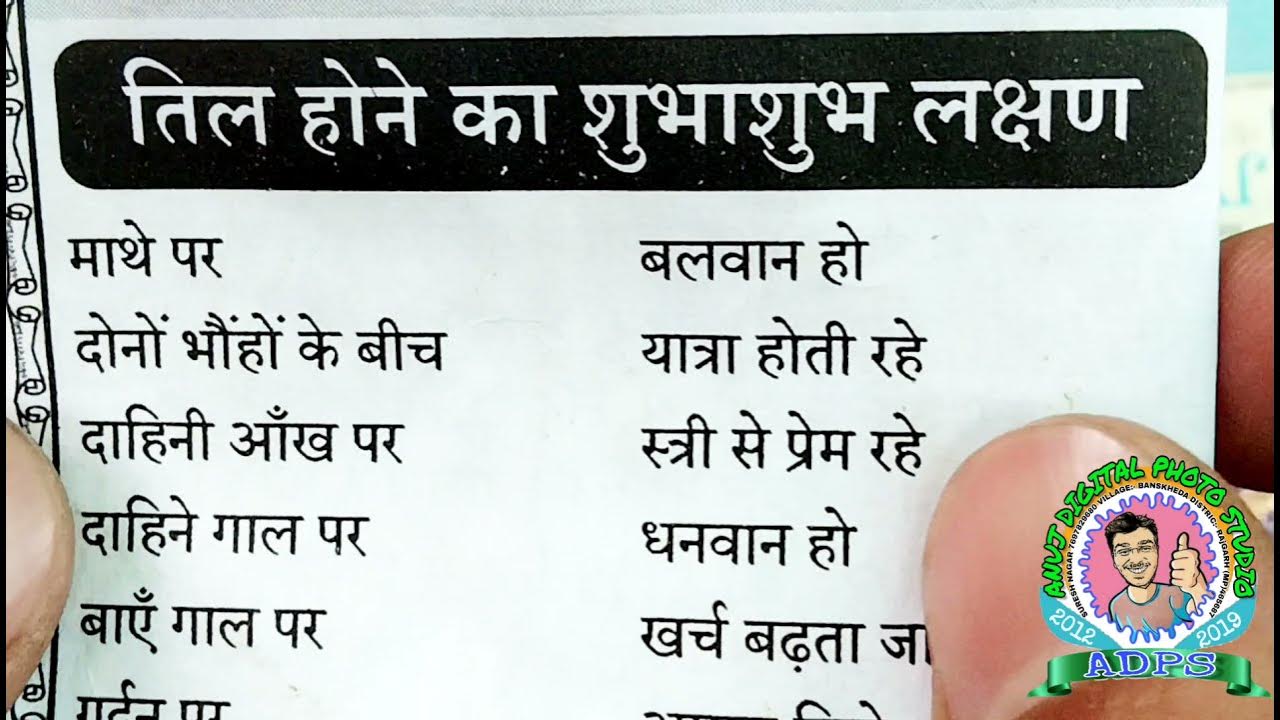 तिल होने का शुभाशुभ लक्षण
माथे पर बलवान हो
दोनों भौंहों के बीच यात्रा होती रहे
दाहिनी आँख पर स्त्री से प्रेम रहे
दाहिने गाल पर धनवान हो
बाएँ गाल पर खर्च बढ़ता जा
गर्दन पर
ANUJ DIGITAL PHOTO STUDIO
SURESH NAGAR 7697829680 VILLAGE:- BANSKHEDA DISTRIC:- RAJGARH (MP)465687
2012 2019
ADPS